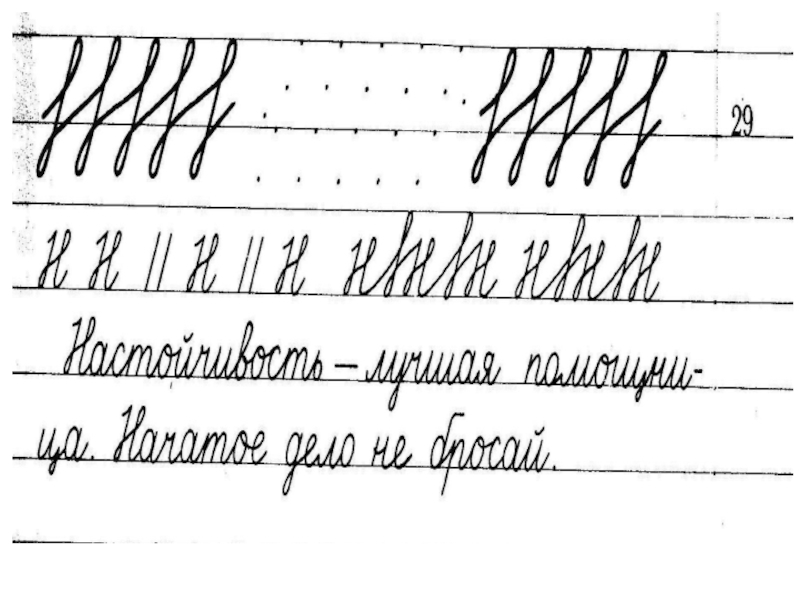 29
Н Н || Н || Н Н Н Н Н Н Н
Настойчивость – лучшая помощни-
ца. Начатое дело не бросай.